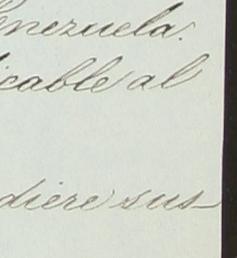 enezuela.
icable al
diere sus